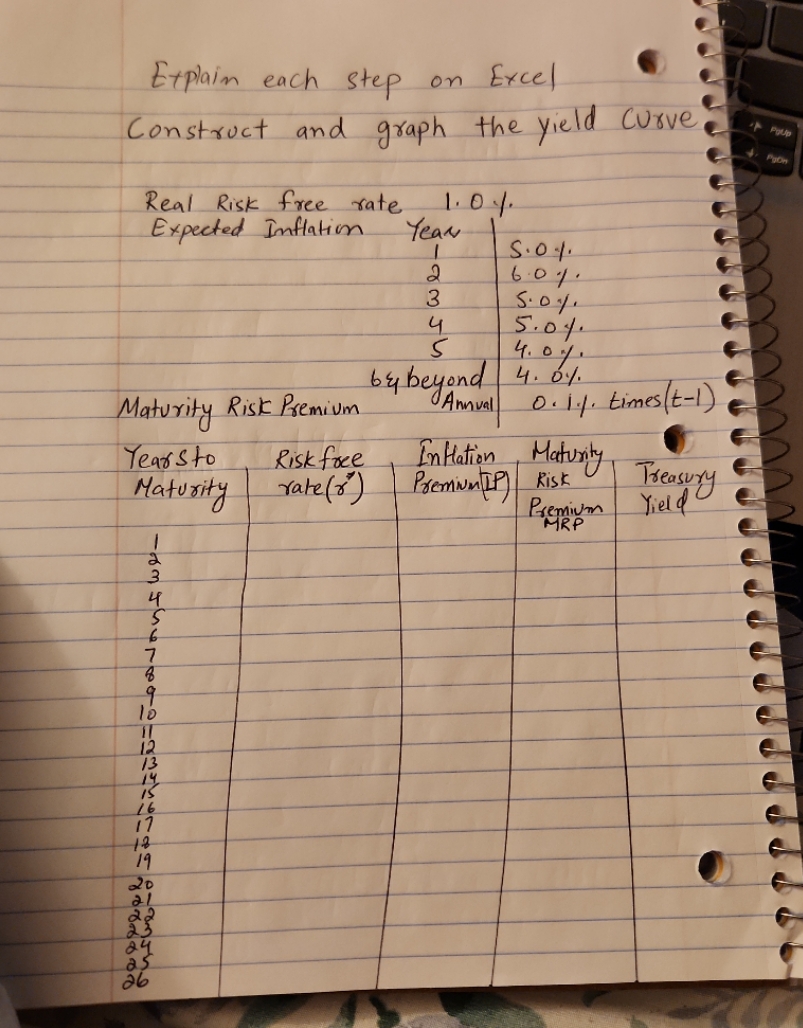 Explain each step on Excel
Construct and graph the yield curve
Real Risk free rate 1.0%
Expected Inflation Year
1 5.0%
2 6.0%
3 5.0%
4 5.0%
5 4.0%
6 & beyond 4.0%
Maturity Risk Premium Annual 0.1% times (t-1)
Years to Risk free Inflation Maturity
Maturity rate (r*) Premium (IP) Risk Treasury
Premium Yield
MRP
1
2
3
4
5
6
7
8
9
10
11
12
13
14
15
16
17
18
19
20
21
22
23
24
25
26
PgUp
PgDn